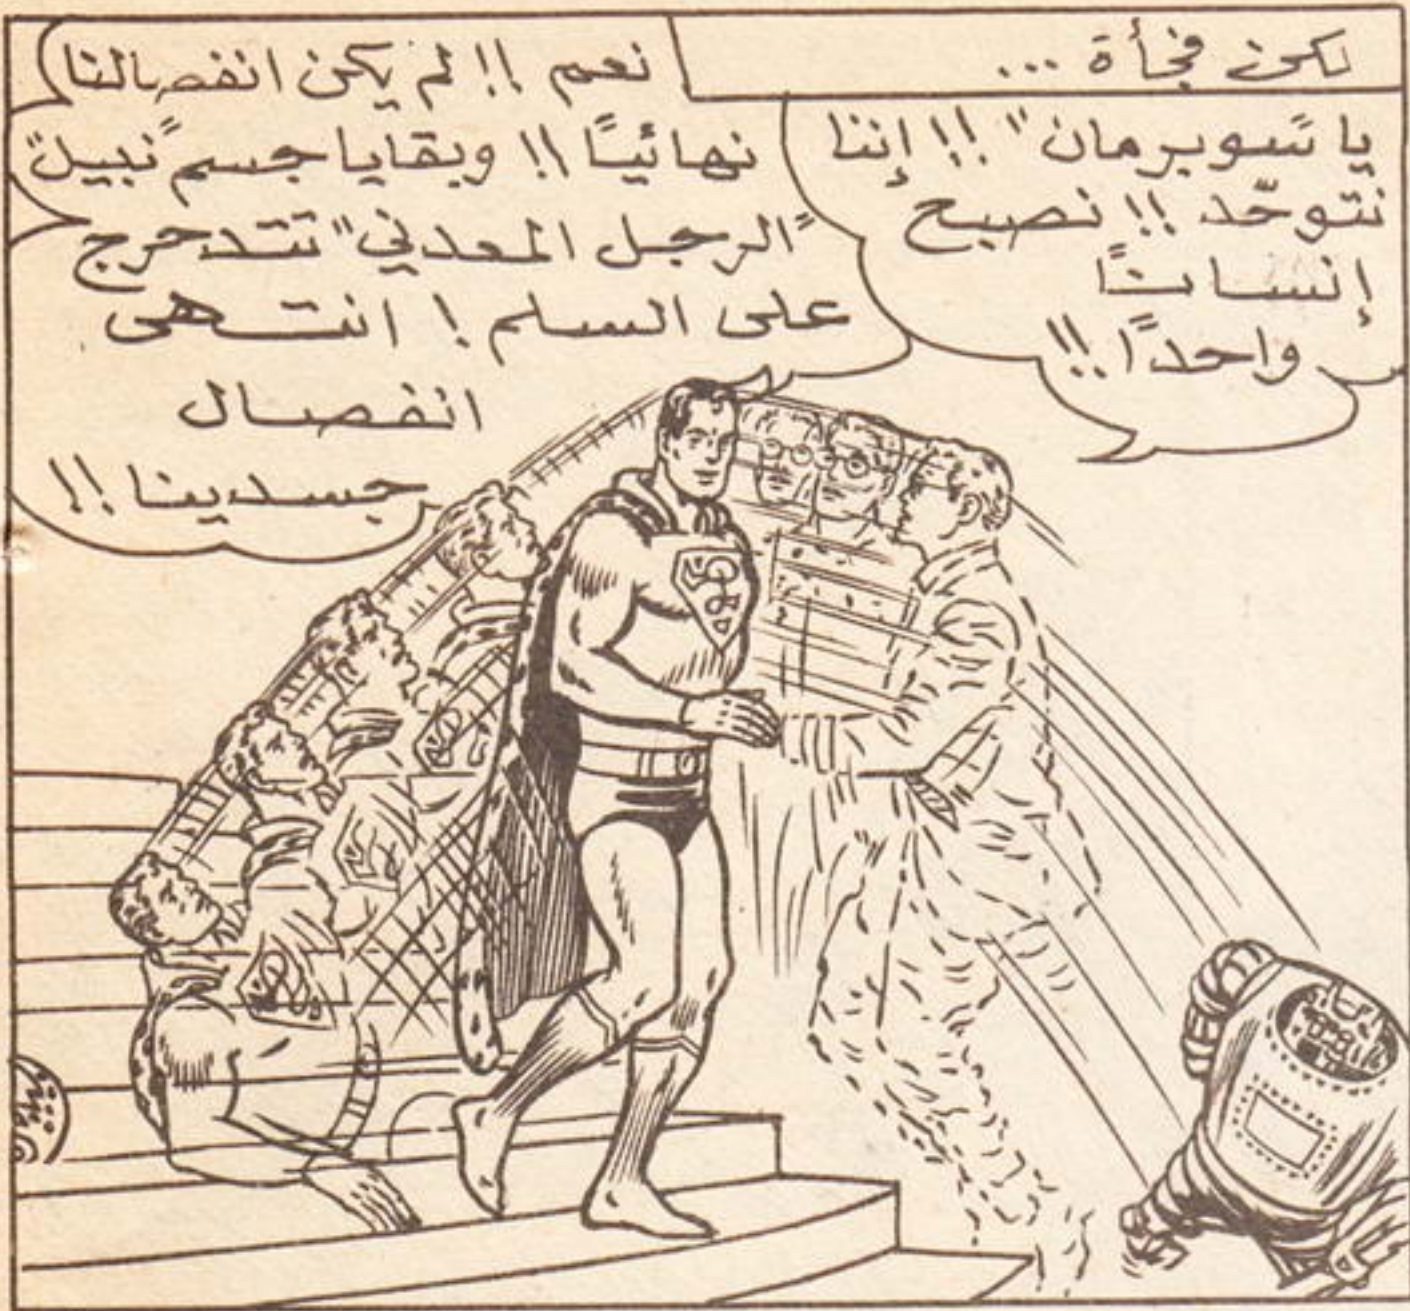 لكن فجأة ...
يا "سوبرمان" !! إننا
نتوحّد !! نصبح
إنسانًا
واحدًا !!
نعم !! لم يكن انفصالنا
نهائيًا !! وبقايا جسم "نبيل"
"الرجل المعدني" تتدحرج
على السلم ! انتهى
انفصال
جسدينا !!